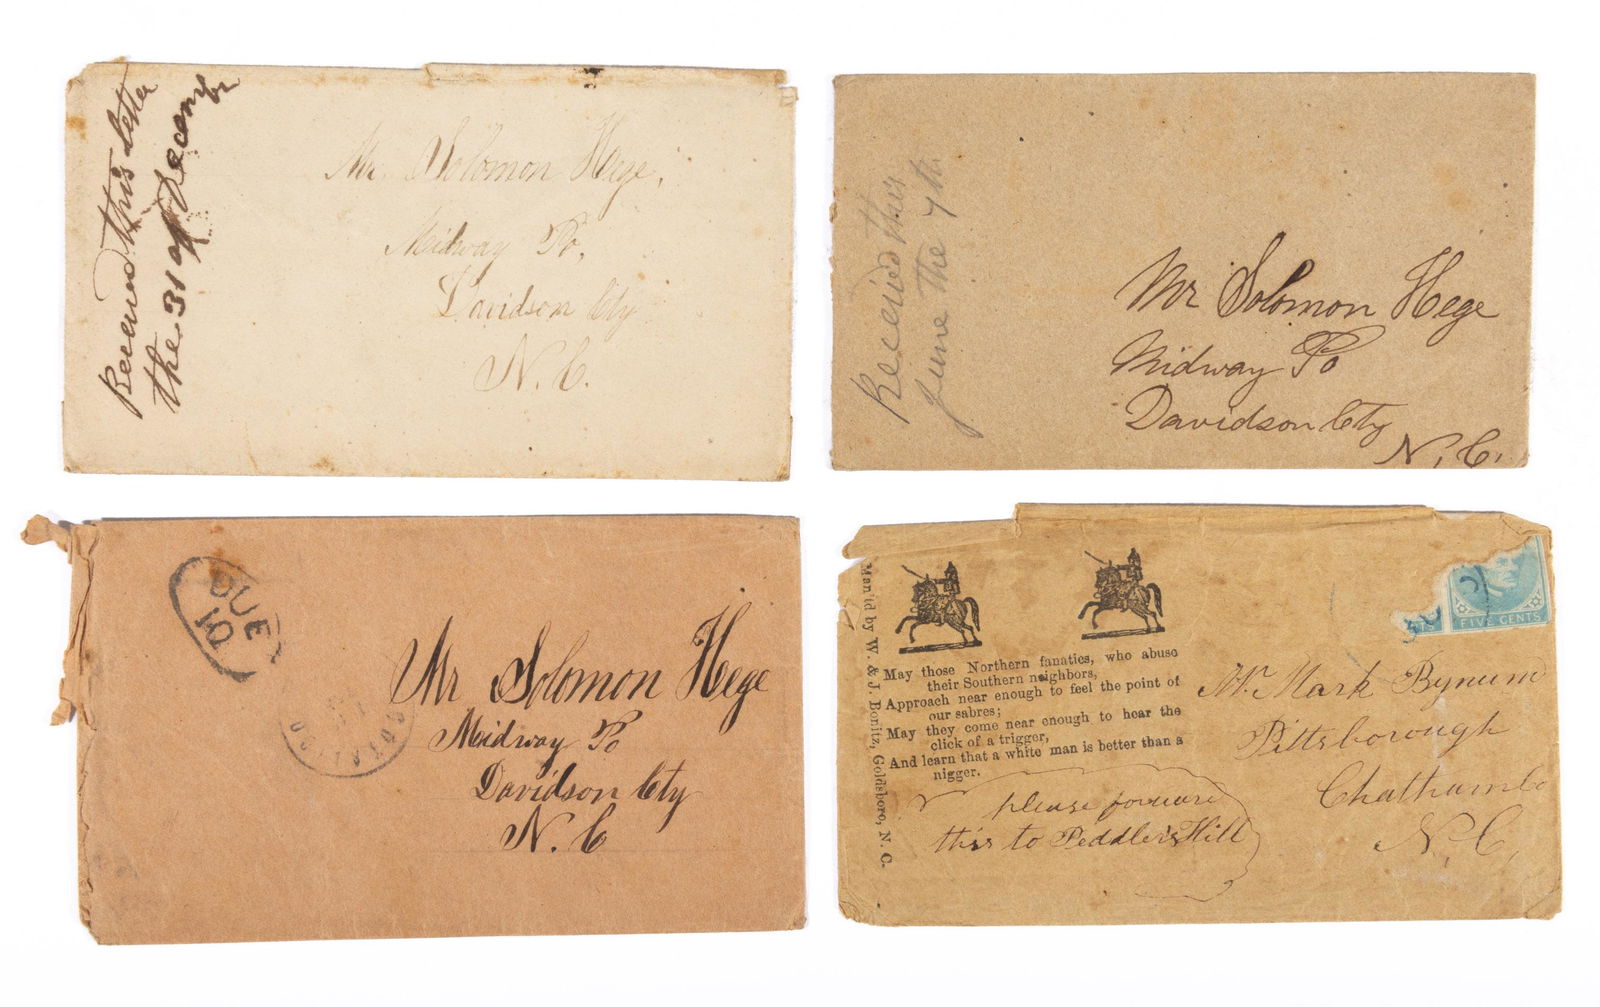 Received this letter
the 31 of Decembr
Mr. Solomon Hege,
Midway Po,
Davidson Cty
N. C.
Received this
June the 7th
Mr Solomon Hege
Midway Po
Davidson Cty
N. C.
DUE
10
Mr Solomon Hege
Midway Po
Davidson Cty
N. C
Man'fd by W. & J. Bonitz, Goldsboro, N. C.
May those Northern fanatics, who abuse
their Southern neighbors,
Approach near enough to feel the point of
our sabres;
May they come near enough to hear the
click of a trigger,
And learn that a white man is better than a
nigger.
please forward
this to Peddler's Hill
FIVE CENTS
Mr. Mark Bynum
Pittsborough
Chatham Co
N. C.